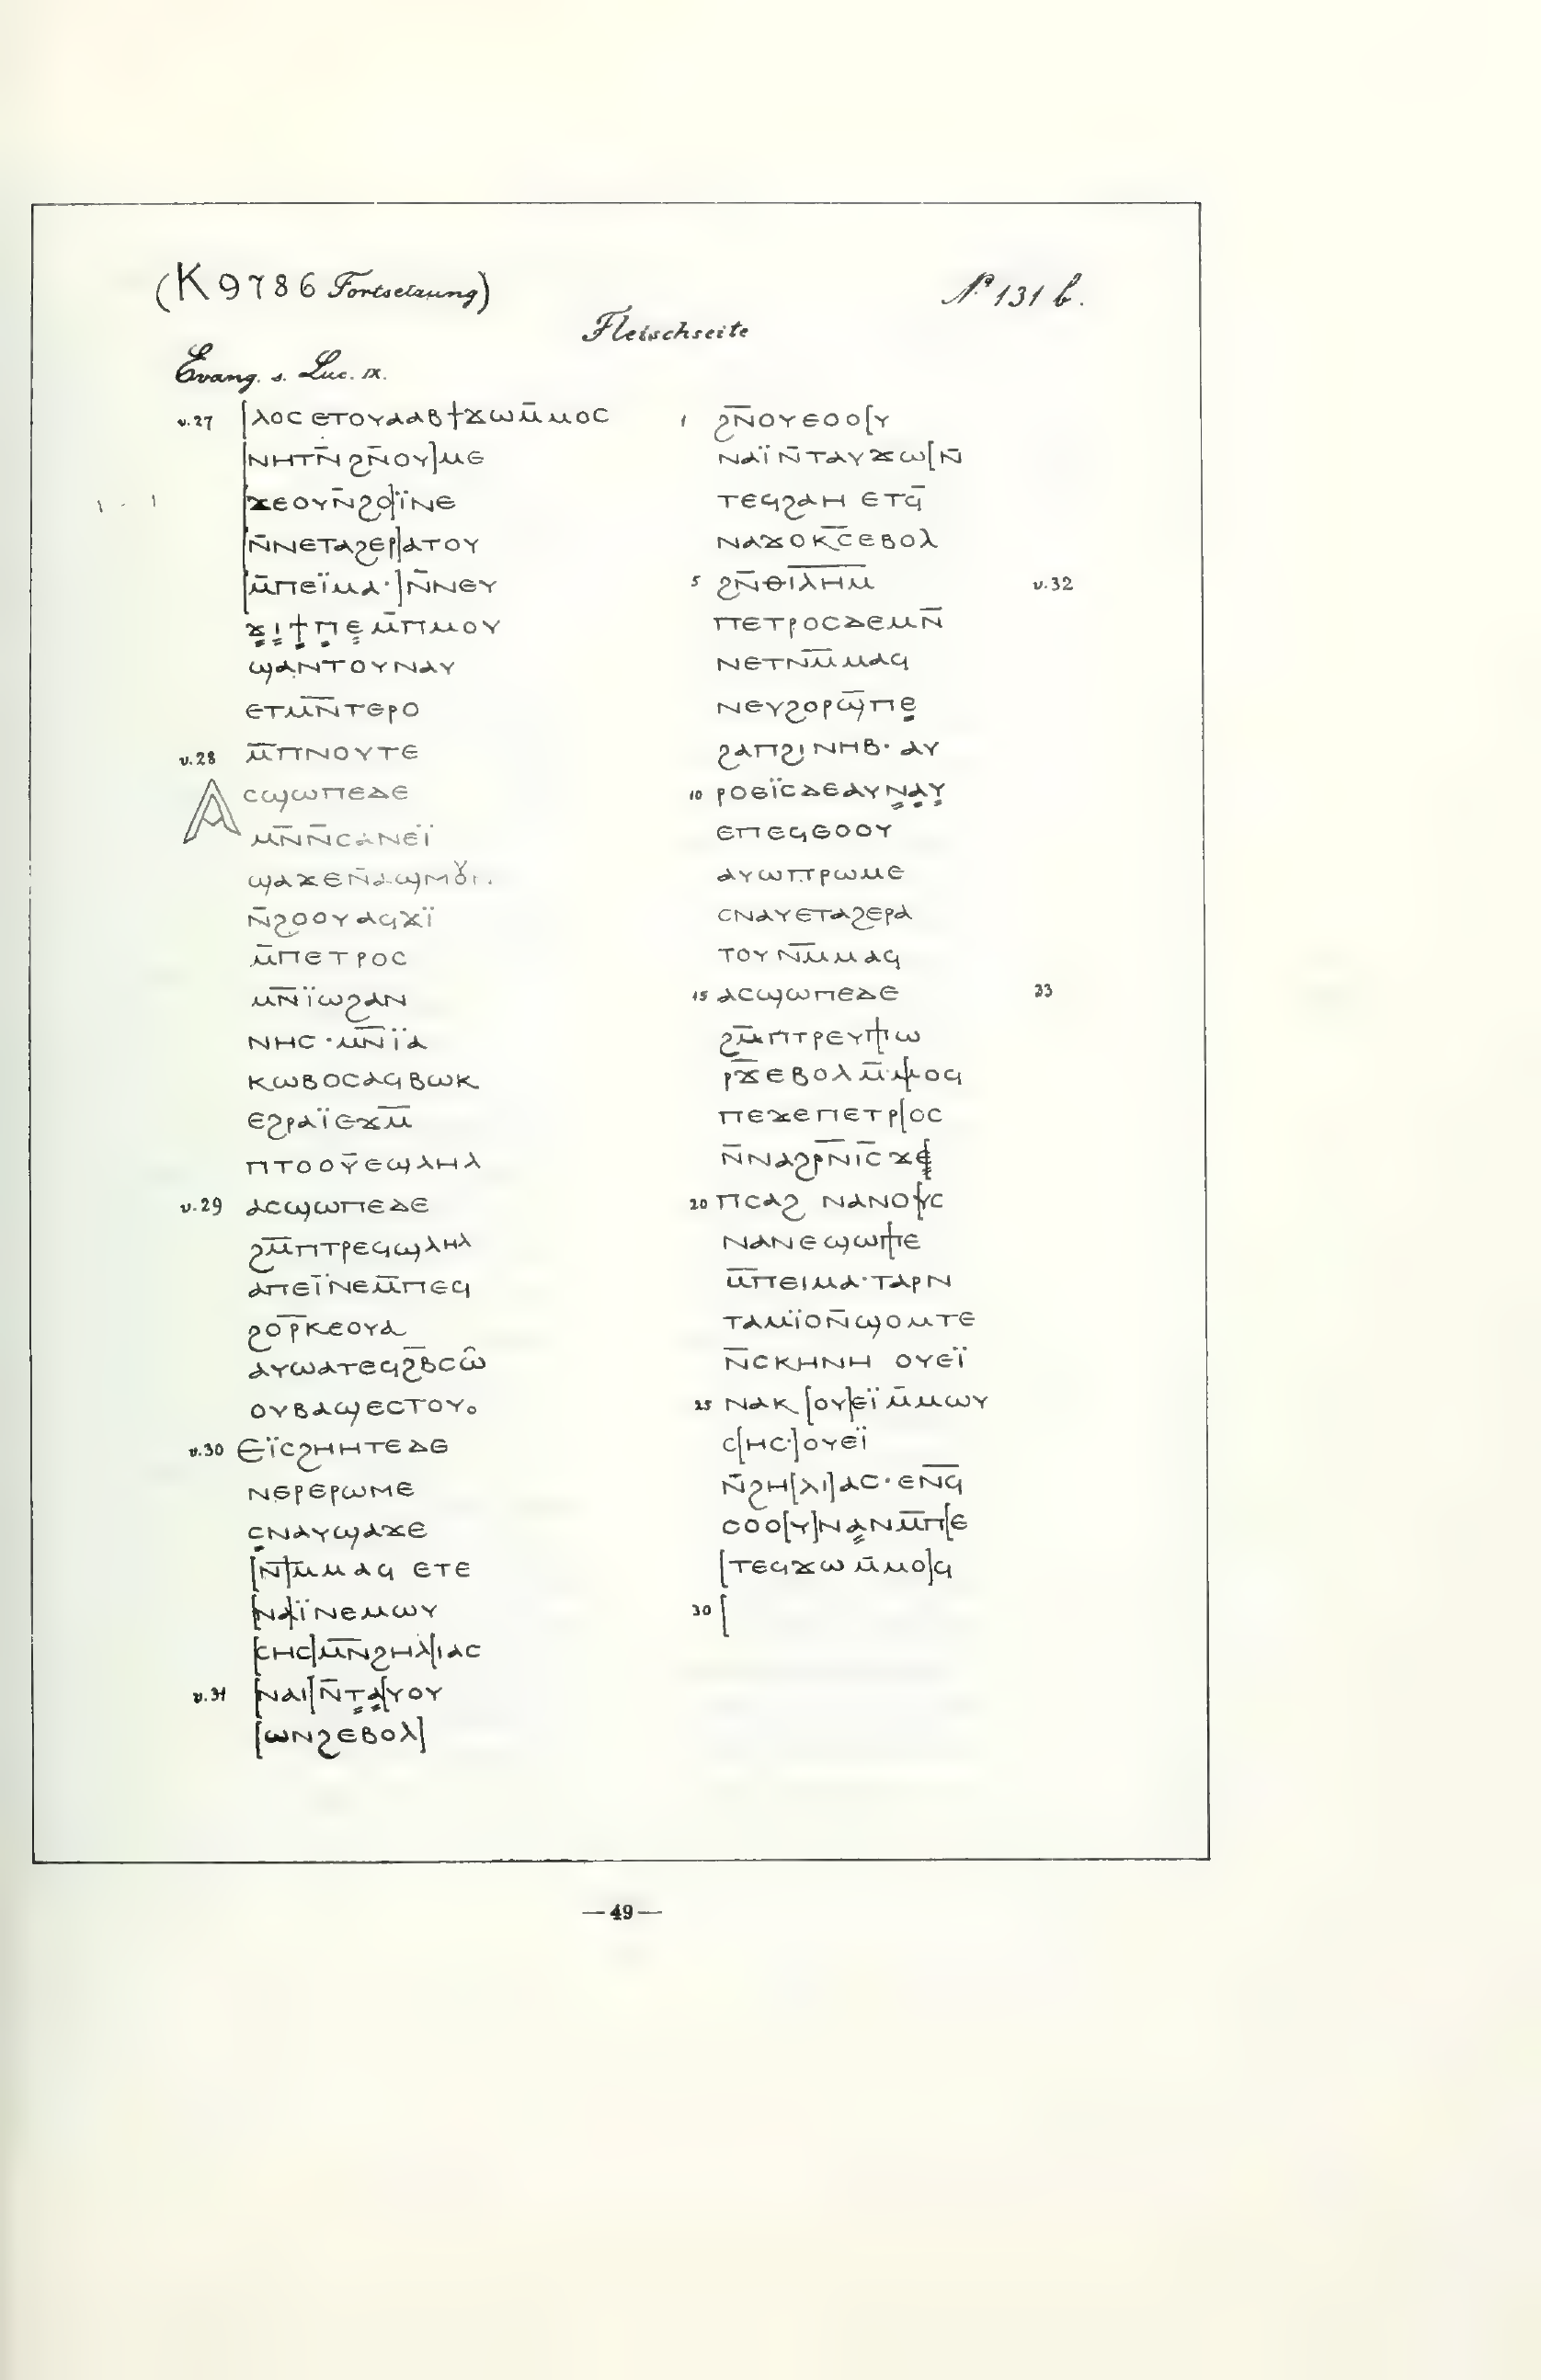 (K 9786 Fortsetzung)
Nº 131 b.
Fleischseite
Evang. s. Luc. IX.
v.27 [ⲗⲟⲥ ⲉⲧⲟⲩⲁⲁⲃ ϯϫⲱⲙ̄ⲙⲟⲥ
[ⲛⲏⲧⲛ̄ ϩⲛ̄ⲟⲩ]ⲙⲉ
[ϫⲉⲟⲩⲛ̄ϩⲟ]ⲓ̈ⲛⲉ
[ⲛ̄ⲛⲉⲧⲁϩⲉⲣ]ⲁⲧⲟⲩ
[ⲙ̄ⲡⲉⲓ̈ⲙⲁ·]ⲛ̄ⲛⲉⲩ
ϫ̣ⲓ̣ϯ̣ⲡ̣ⲉ̣ⲙ̄ⲡⲙⲟⲩ
ϣⲁⲛⲧⲟⲩⲛⲁⲩ
ⲉⲧⲙⲛ̄ⲧⲉⲣⲟ
v.28 ⲙ̄ⲡⲛⲟⲩⲧⲉ
Ⲁⲥϣⲱⲡⲉⲇⲉ
ⲙⲛ̄ⲛ̄ⲥⲁⲛⲉⲓ̈
ϣⲁϫⲉⲛ̄ⲁϣⲙⲟⲩⲛ.
ⲛ̄ϩⲟⲟⲩ ⲁϥϫⲓ̈
ⲙ̄ⲡⲉⲧⲣⲟⲥ
ⲙⲛ̄ⲓ̈ⲱϩⲁⲛ
ⲛⲏⲥ·ⲙⲛ̄ⲓ̈ⲁ
ⲕⲱⲃⲟⲥⲁϥⲃⲱⲕ
ⲉϩⲣⲁⲓ̈ⲉϫⲙ̄
ⲡⲧⲟⲟⲩ̄ⲉϣⲗⲏⲗ
v.29 ⲁⲥϣⲱⲡⲉⲇⲉ
ϩⲙ̄ⲡⲧⲣⲉϥϣⲗⲏⲗ
ⲁⲡⲉⲓ̈ⲛⲉⲙ̄ⲡⲉϥ
ϩⲟⲣ̄ⲕⲉⲟⲩⲁ
ⲁⲩⲱⲁⲧⲉϥϩ̄ⲃⲥⲱ̂
ⲟⲩⲃⲁϣⲉⲥⲧⲟⲩ.
v.30 ⲉⲓ̈ⲥϩⲏⲏⲧⲉⲇⲉ
ⲛⲉⲣⲉⲣⲱⲙⲉ
ⲥ̣ⲛⲁⲩϣⲁϫⲉ
[ⲛ̄]ⲙ̄ⲙⲁϥ ⲉⲧⲉ
[ⲛⲁ]ⲓ̈ⲛⲉⲙⲱⲩ
[ⲥⲏⲥ]ⲙⲛ̄ϩⲏⲗ[ⲓⲁⲥ
v.31 [ⲛⲁⲓ]ⲛ̄ⲧ̣ⲁ̣[ⲩⲟⲩ
[ⲱⲛϩⲉⲃⲟⲗ]
1 ϩⲛ̄ⲟⲩⲉⲟⲟ[ⲩ
ⲛⲁⲓ̈ ⲛ̄ⲧⲁⲩϫⲱ[ⲛ̄
ⲧⲉϥϩⲁⲏ ⲉⲧϥ̄
ⲛⲁϫⲟⲕⲥ̄ⲉⲃⲟⲗ
5 ϩⲛ̄ⲑⲓⲗⲏⲙ v.32
ⲡⲉⲧⲣⲟⲥⲇⲉⲙⲛ̄
ⲛⲉⲧⲛⲙ̄ⲙⲁϥ
ⲛⲉⲩϩⲟⲣϣ̄ⲡⲉ̣
ϩⲁⲡϩⲓⲛⲏⲃ· ⲁⲩ
10 ⲣⲟⲉⲓ̈ⲥⲇⲉⲁⲩⲛ̣ⲁ̣ⲩ̣
ⲉⲡⲉϥⲉⲟⲟⲩ
ⲁⲩⲱⲡⲣⲱⲙⲉ
ⲥⲛⲁⲩⲉⲧⲁϩⲉⲣⲁ
ⲧⲟⲩ ⲛⲙ̄ⲙⲁϥ
15 ⲁⲥϣⲱⲡⲉⲇⲉ 33
ϩⲙ̄ⲡⲧⲣⲉⲩ[ⲡⲱ
ⲣϫ̄ⲉⲃⲟⲗ ⲙ̄ⲙ[ⲟϥ
ⲡⲉϫⲉⲡⲉⲧⲣ[ⲟⲥ
ⲛ̄ⲛⲁϩⲣⲛ̄ⲓ̅ⲥ̅ ϫⲉ̣
20 ⲡⲥⲁϩ ⲛⲁⲛⲟ[ⲩⲥ
ⲛⲁⲛⲉϣⲱ[ⲡⲉ
ⲙ̄ⲡⲉⲓⲙⲁ·ⲧⲁⲣⲛ
ⲧⲁⲙⲓ̈ⲟⲛ̄ϣⲟⲙⲧⲉ
ⲛ̄ⲥⲕⲏⲛⲏ ⲟⲩⲉⲓ̈
25 ⲛⲁⲕ [ⲟⲩ]ⲉⲓ̈ ⲙ̄ⲙⲱⲩ
ⲥ[ⲏⲥ·]ⲟⲩⲉⲓ̈
ⲛ̄ϩⲏ[ⲗⲓ]ⲁⲥ·ⲉⲛϥ̄
ⲥⲟⲟ[ⲩ]ⲛⲁ̣ⲛⲙ̄ⲡ[ⲉ
[ⲧⲉϥϫⲱ ⲙ̄ⲙⲟ]ϥ
30 [
— 49 —